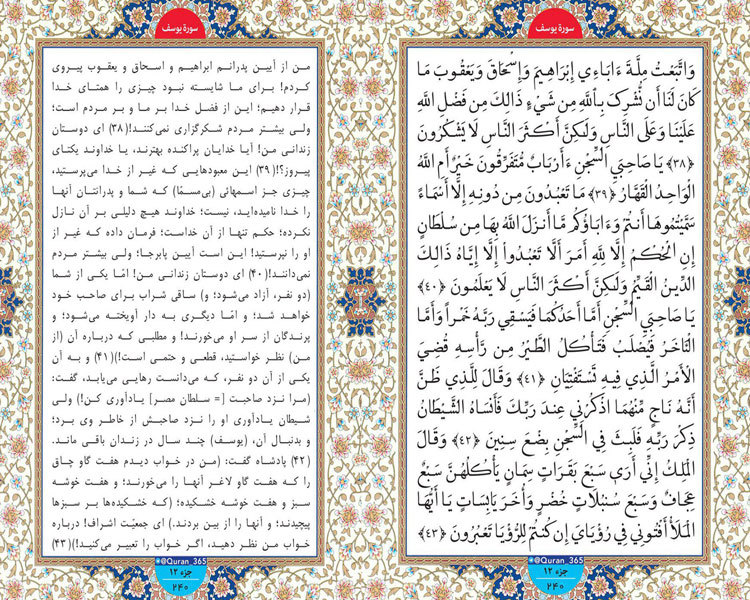 سورهٔ یوسف
وَاتَّبَعْتُ مِلَّةَ ءَابَاءِي إِبْرَاهِيمَ وَإِسْحَاقَ وَيَعْقُوبَ مَا
كَانَ لَنَا أَن نُّشْرِكَ بِاللَّهِ مِن شَيْءٍ ذَالِكَ مِن فَضْلِ اللَّهِ
عَلَيْنَا وَعَلَى النَّاسِ وَلَكِنَّ أَكْثَرَ النَّاسِ لَا يَشْكُرُونَ
﴿۳۸﴾ يَا صَاحِبَيِ السِّجْنِ ءَأَرْبَابٌ مُّتَفَرِّقُونَ خَيْرٌ أَمِ اللَّهُ
الْوَاحِدُ الْقَهَّارُ ﴿۳۹﴾ مَا تَعْبُدُونَ مِن دُونِهِ إِلَّا أَسْمَاءً
سَمَّيْتُمُوهَا أَنتُمْ وَءَابَاؤُكُم مَّا أَنزَلَ اللَّهُ بِهَا مِن سُلْطَانٍ
إِنِ الْحُكْمُ إِلَّا لِلَّهِ أَمَرَ أَلَّا تَعْبُدُوا إِلَّا إِيَّاهُ ذَالِكَ
الدِّينُ الْقَيِّمُ وَلَكِنَّ أَكْثَرَ النَّاسِ لَا يَعْلَمُونَ ﴿۴۰﴾
يَا صَاحِبَيِ السِّجْنِ أَمَّا أَحَدُكُمَا فَيَسْقِي رَبَّهُ خَمْراً وَأَمَّا
الْآخَرُ فَيُصْلَبُ فَتَأْكُلُ الطَّيْرُ مِن رَأْسِهِ قُضِيَ
الْأَمْرُ الَّذِي فِيهِ تَسْتَفْتِيَانِ ﴿۴۱﴾ وَقَالَ لِلَّذِي ظَنَّ
أَنَّهُ نَاجٍ مِّنْهُمَا اذْكُرْنِي عِندَ رَبِّكَ فَأَنسَاهُ الشَّيْطَانُ
ذِكْرَ رَبِّهِ فَلَبِثَ فِي السِّجْنِ بِضْعَ سِنِينَ ﴿۴۲﴾ وَقَالَ
الْمَلِكُ إِنِّي أَرَى سَبْعَ بَقَرَاتٍ سِمَانٍ يَأْكُلُهُنَّ سَبْعٌ
عِجَافٌ وَسَبْعَ سُنبُلَاتٍ خُضْرٍ وَأُخَرَ يَابِسَاتٍ يَا أَيُّهَا
الْمَلَأُ أَفْتُونِي فِي رُؤْيَايَ إِن كُنتُمْ لِلرُّؤْيَا تَعْبُرُونَ ﴿۴۳﴾
@Quran_365
جزء ۱۲
۲۴۰
سورهٔ یوسف
من از آیین پدرانم ابراهیم و اسحاق و یعقوب پیروی
کردم! برای ما شایسته نبود چیزی را همتای خدا
قرار دهیم؛ این از فضل خدا بر ما و بر مردم است؛
ولی بیشتر مردم شکرگزاری نمی‌کنند! (۳۸) ای دوستان
زندانی من! آیا خدایان پراکنده بهترند، یا خداوند یکتای
پیروز؟! (۳۹) این معبودهایی که غیر از خدا می‌پرستید،
چیزی جز اسمهائی (بی‌مسمّا) که شما و پدرانتان آنها
را خدا نامیده‌اید، نیست؛ خداوند هیچ دلیلی بر آن نازل
نکرده؛ حکم تنها از آن خداست؛ فرمان داده که غیر از
او را نپرستید! این است آیین پابرجا؛ ولی بیشتر مردم
نمی‌دانند! (۴۰) ای دوستان زندانی من! امّا یکی از شما
(دو نفر، آزاد می‌شود؛ و) ساقی شراب برای صاحب خود
خواهد شد؛ و امّا دیگری به دار آویخته می‌شود؛ و
پرندگان از سر او می‌خورند! و مطلبی که درباره آن (از
من) نظر خواستید، قطعی و حتمی است!) (۴۱) و به آن
یکی از آن دو نفر، که می‌دانست رهایی می‌یابد، گفت:
(مرا نزد صاحبت [= سلطان مصر] یادآوری کن!) ولی
شیطان یادآوری او را نزد صاحبش از خاطر وی برد؛
و بدنبال آن، (یوسف) چند سال در زندان باقی ماند.
(۴۲) پادشاه گفت: (من در خواب دیدم هفت گاو چاق
را که هفت گاو لاغر آنها را می‌خورند؛ و هفت خوشه
سبز و هفت خوشه خشکیده؛ (که خشکیده‌ها بر سبزها
پیچیدند؛ و آنها را از بین بردند.) ای جمعیّت اشراف! درباره
خواب من نظر دهید، اگر خواب را تعبیر می‌کنید!) (۴۳)
@Quran_365
جزء ۱۲
۲۴۰